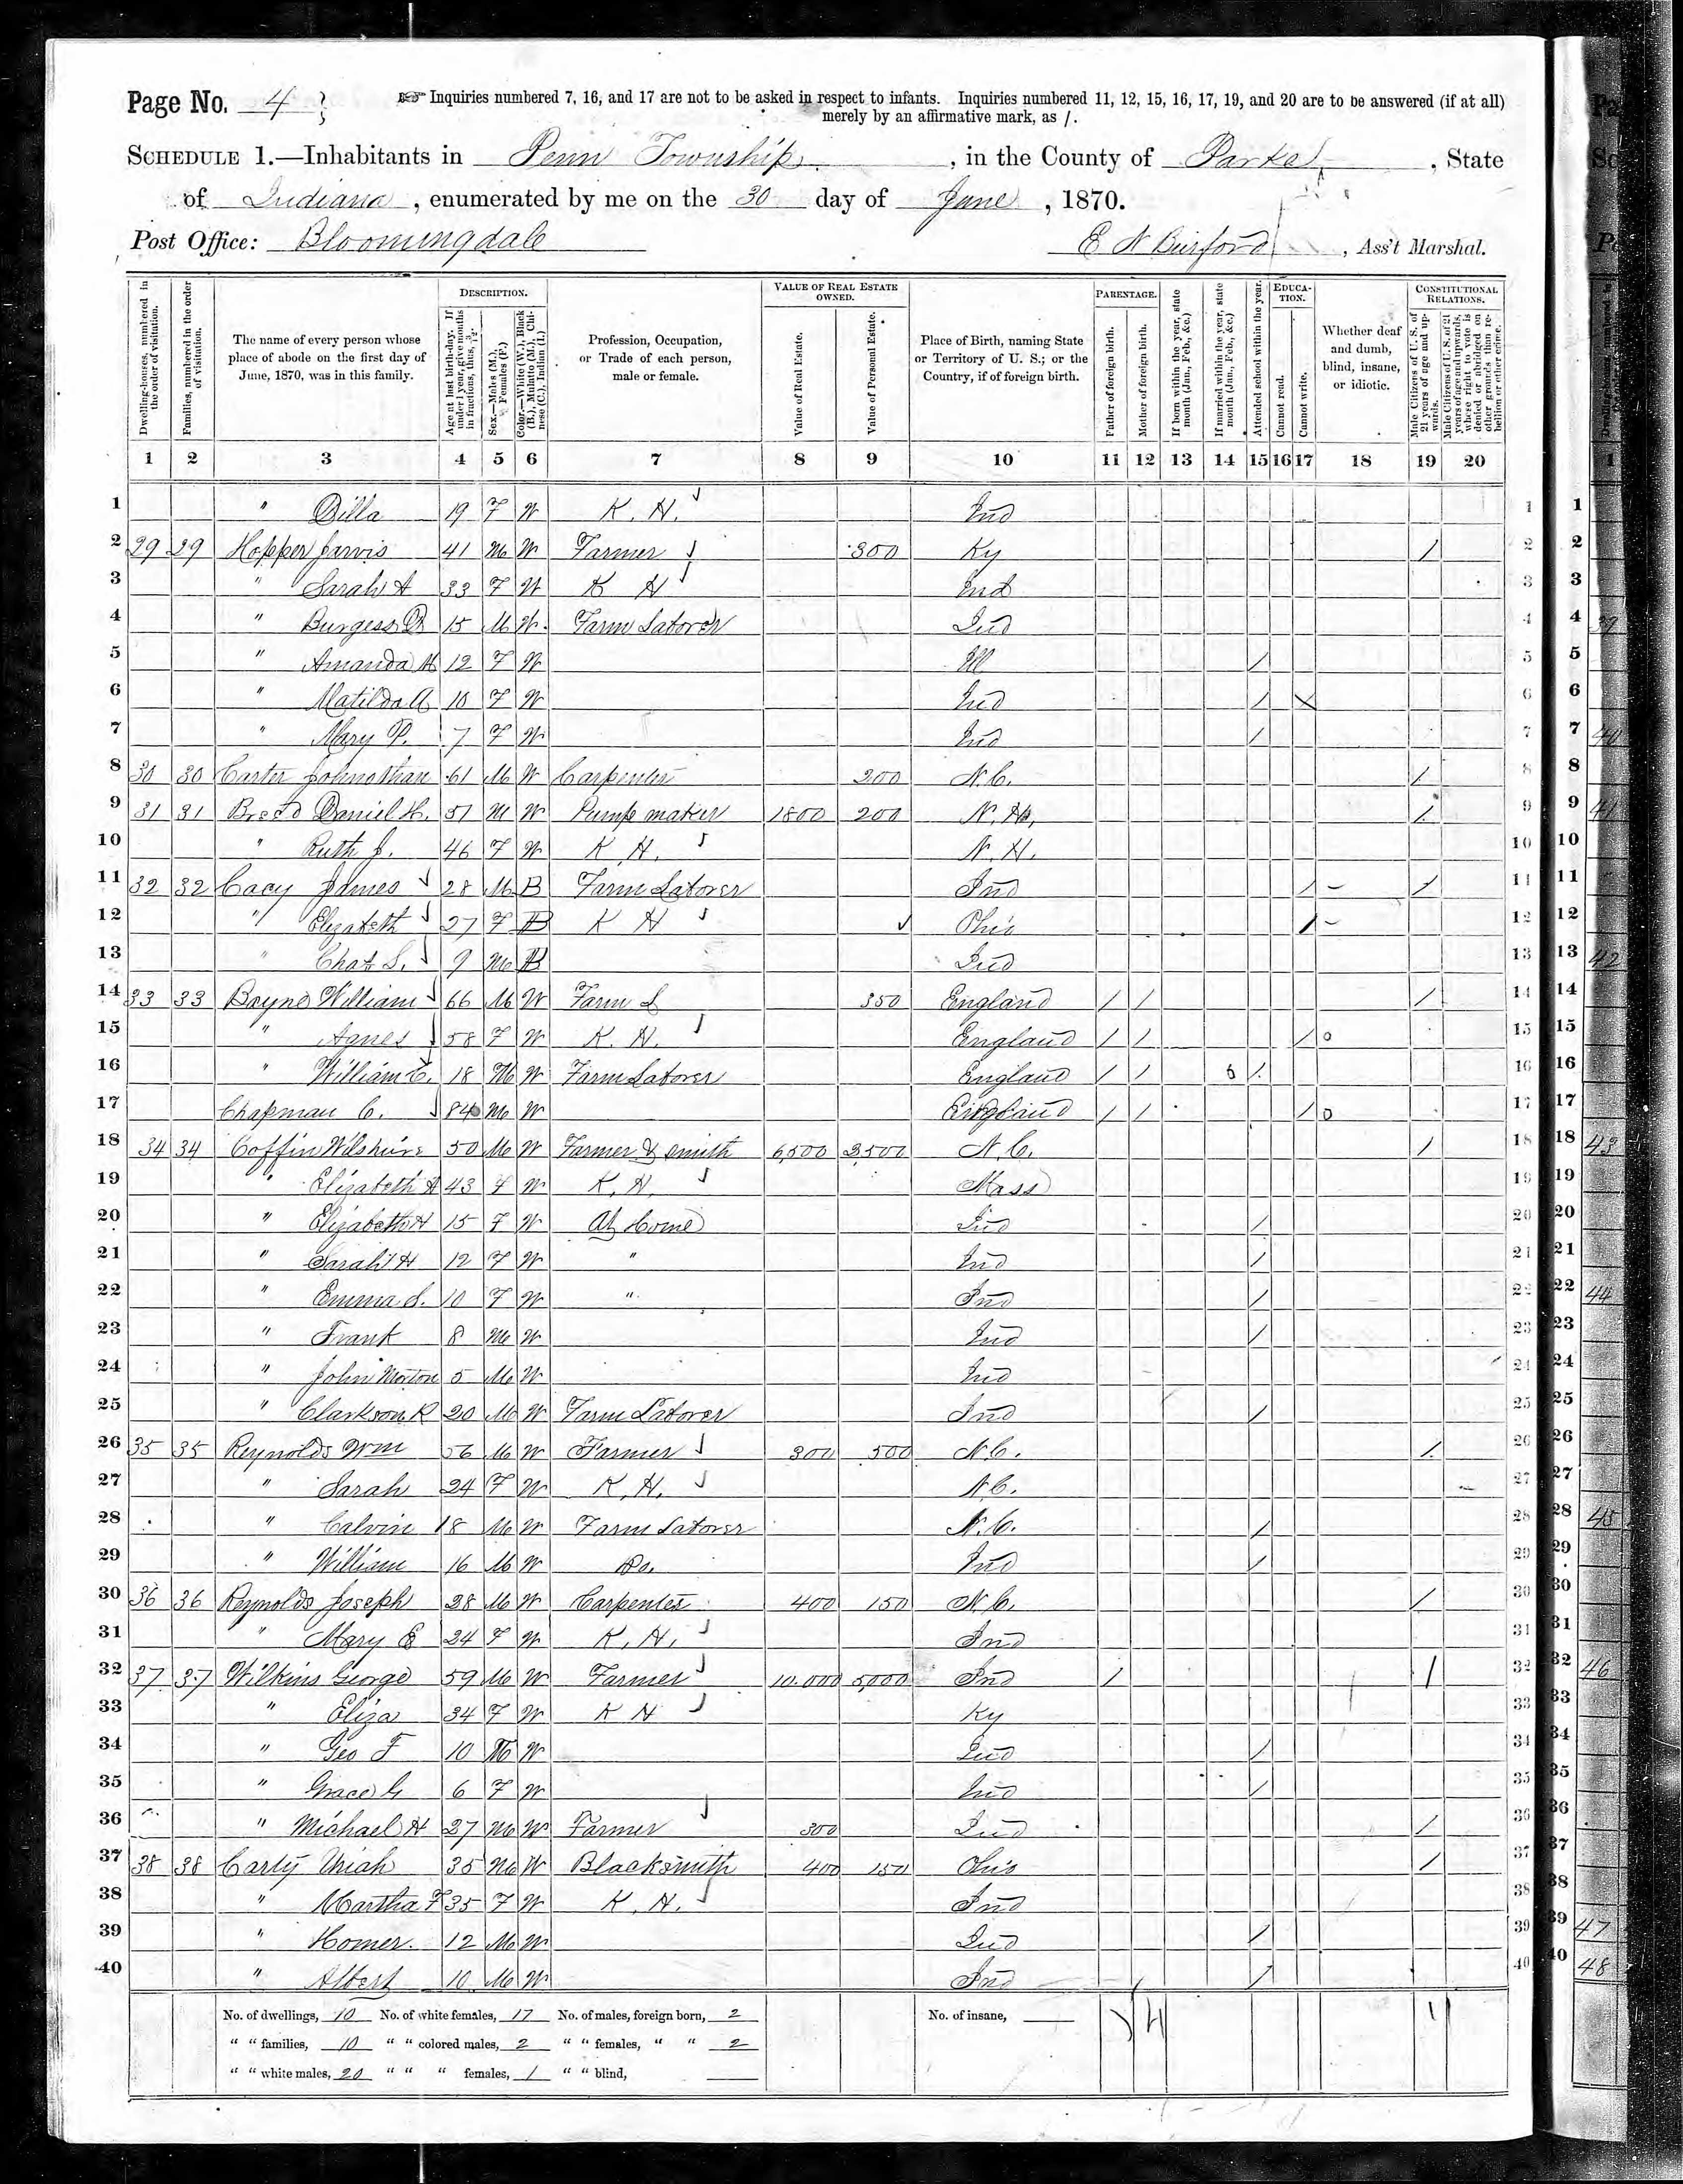 Page No. 4
Inquiries numbered 7, 16, and 17 are not to be asked in respect to infants. Inquiries numbered 11, 12, 15, 16, 17, 19, and 20 are to be answered (if at all)
merely by an affirmative mark, as /.
SCHEDULE 1.—Inhabitants in Penn Township, in the County of Parke, State
of Indiana, enumerated by me on the 30 day of June, 1870.
Post Office: Bloomingdale
E N Burford, Ass't Marshal.
Dwelling-houses, numbered in the order of visitation.
Families, numbered in the order of visitation.
The name of every person whose place of abode on the first day of June, 1870, was in this family.
DESCRIPTION.
Age at last birth-day. If under 1 year, give months in fractions, thus, 3/12.
Sex.—Males (M.), Females (F.)
Color.—White (W.), Black (B.), Mulatto (M.), Chinese (C.), Indian (I.)
Profession, Occupation, or Trade of each person, male or female.
VALUE OF REAL ESTATE OWNED.
Value of Real Estate.
Value of Personal Estate.
Place of Birth, naming State or Territory of U. S.; or the Country, if of foreign birth.
PARENTAGE.
Father of foreign birth.
Mother of foreign birth.
If born within the year, state month (Jan., Feb., &c.)
If married within the year, state month (Jan., Feb., &c.)
Attended school within the year.
EDUCATION.
Cannot read.
Cannot write.
Whether deaf and dumb, blind, insane, or idiotic.
CONSTITUTIONAL RELATIONS.
Male Citizens of U. S. of 21 years of age and upwards.
Male Citizens of U. S. of 21 years of age and upwards, whose right to vote is denied or abridged on other grounds than rebellion or other crime.
1 2 3 4 5 6 7 8 9 10 11 12 13 14 15 16 17 18 19 20
1 " Dilla 19 F W K. H. Ind 1
2 29 29 Hopper Jarvis 41 M W Farmer 300 Ky / 2
3 " Sarah A 33 F W K H Ind 3
4 " Burgess 15 M W Farm Laborer Ind 4
5 " Amanda M 12 F W Ill / 5
6 " Matilda A 10 F W Ind / X 6
7 " Mary P. 7 F W Ind / 7
8 30 30 Carter Johnathan 61 M W Carpenter 200 N.C. / 8
9 31 31 Breed Daniel H. 51 M W Pump maker 1800 200 N. H. / 9
10 " Ruth J. 46 F W K. H. N. H. 10
11 32 32 Cacy James 28 M B Farm Laborer Ind / – / 11
12 " Elizabeth 27 F B K H Ohio / – 12
13 " Chas S. 9 M B Ind 13
14 33 33 Bayne William 66 M W Farm L 350 England / / / 14
15 " Agnes 58 F W K. H. England / / / o 15
16 " William C. 18 M W Farm Laborer England / / 6 / 16
17 Chapman C. 84 M W England / / / o 17
18 34 34 Coffin Wilshire 50 M W Farmer & Smith 6,500 2,500 N. C. / 18
19 " Elizabeth A 43 F W K. H. Mass 19
20 " Elizabeth H 15 F W At Home Ind / 20
21 " Sarah H 12 F W " Ind / 21
22 " Emma S. 10 F W " Ind / 22
23 " Frank 8 M W Ind / 23
24 " John Morton 5 M W Ind 24
25 " Clarkson R 20 M W Farm Laborer Ind / 25
26 35 35 Reynolds Wm 56 M W Farmer 300 500 N.C. / 26
27 " Sarah 24 F W K. H. N.C. 27
28 " Calvin 18 M W Farm Laborer N.C. / 28
29 " William 16 M W Do. Ind / 29
30 36 36 Reynolds Joseph 28 M W Carpenter 400 150 N.C. / 30
31 " Mary E 24 F W K. H. Ind 31
32 37 37 Wilkins George 59 M W Farmer 10.000 5,000 Ind / / 32
33 " Eliza 34 F W K H Ky 33
34 " Geo F 10 M W Ind / 34
35 " Grace G 6 F W Ind / 35
36 " Michael H 27 M W Farmer 300 Ind / 36
37 38 38 Carty Uriah 35 M W Blacksmith 400 150 Ohio / 37
38 " Martha F 35 F W K. H. Ind 38
39 " Homer 12 M W Ind / 39
40 " Albert 10 M W Ind / 40
No. of dwellings, 10 No. of white females, 17 No. of males, foreign born, 2 No. of insane,
" " families, 10 " " colored males, 2 " " females, " " 2
" " white males, 20 " " " females, 1 " " blind,